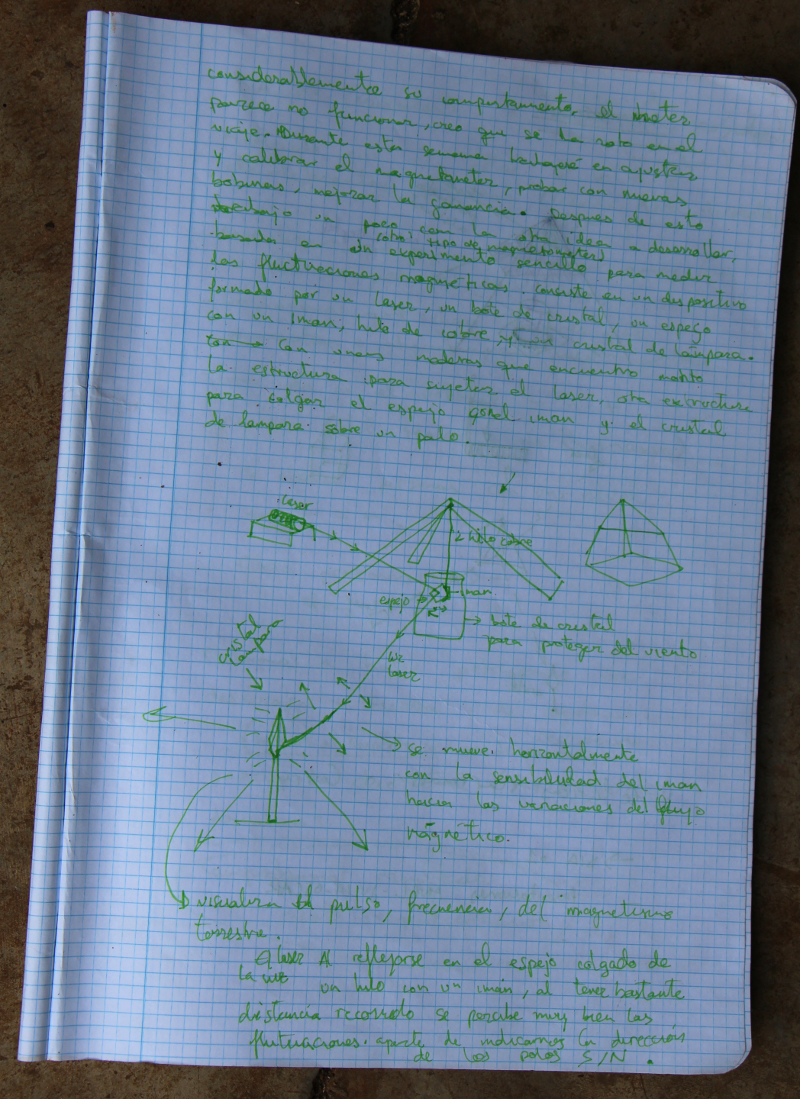 considerablemente su comportamento, el
parece no funcionar, creo que se ha roto en el
viaje. Durante esta semana trabajé en ajustar
y calibrar el magnetometer, probar con nuevas
bobinas, mejorar la ganancia. Despues de esto
trabajo un poco con la otra idea a desarrollar,
(otro tipo de magnetometer)
basada en un experimento sencillo para medir
las fluctuaciones magneticas, consiste en un dispositivo
formado por un laser, un bote de cristal, un espejo
con un iman, hilo de cobre y un cristal de lampara.
Con unas maderas que encuentro monto
la estructura para sujetar el laser, otra estructura
para colgar el espejo con el iman y el cristal
de lampara sobre un palo.
laser
hilo cobre
espejo
iman
bote de cristal
para proteger del viento
cristal
lampara
luz
laser
se mueve horizontalmente
con la sensibilidad del iman
hacia las variaciones del flujo
magnético.
visualiza el pulso, frecuencia, del magnetismo
terrestre.
Al reflejarse en el espejo colgado de
la luz laser
un hilo con un iman, al tener bastante
distancia recorrido se percibe muy bien las
fluctuaciones. aparte de indicarnos la dirección
de los polos S/N.